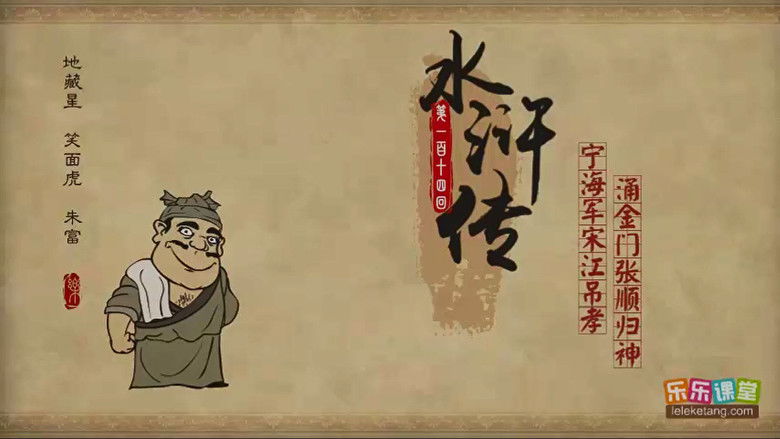 地藏星 笑面虎 朱富
水浒传
第一百十四回
宁海军宋江吊孝
涌金门张顺归神
乐乐课堂
leleketang.com